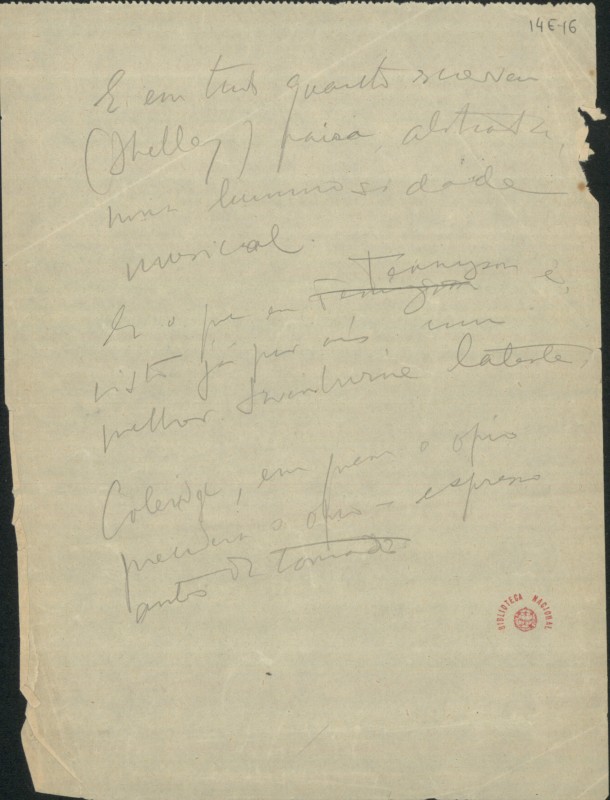 14E-16
E em tudo quanto escreveu
(Shelley) paira, abstracta,
uma luminosidade
musical.
E o que em Tennyson Tennyson é,
visto já por nós um
melhor Swinburne latente,
Coleridge, em quem o opio
precedeu o opio – expresso
antes de tomado
BIBLIOTECA NACIONAL